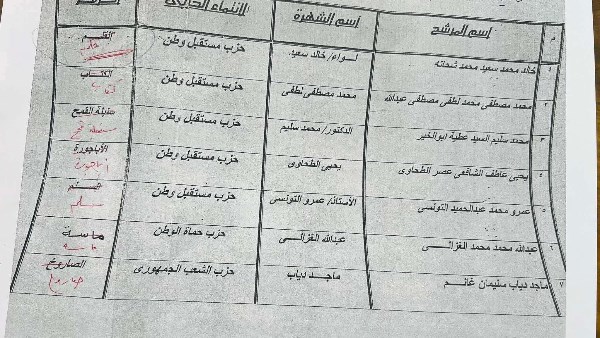 م اسم المرشح اسم الشهرة الانتماء الحزبى الرمز
١ خالد محمد سعيد محمد شحاته لواء/ خالد سعيد حزب مستقبل وطن القلم
٢ محمد مصطفى محمد لطفى مصطفى عبدالله محمد مصطفى لطفى حزب مستقبل وطن الكتاب
كتاب
٣ محمد سليم السيد عطية ابوالخير الدكتور/ محمد سليم حزب مستقبل وطن سنبلة القمح
سنبلة قمح
٤ يحيى عاطف الشافعى عصر الطحاوى يحيى الطحاوى حزب مستقبل وطن الأباجورة
اباجورة
٥ عمرو محمد عبدالحميد التونسى الأستاذ/ عمرو التونسى حزب مستقبل وطن سلم
سلم
٦ عبدالله محمد محمد الغزالى عبدالله الغزالى حزب حماة الوطن ماسة
ماسه
٧ ماجد دياب سليمان غانم ماجد دياب حزب الشعب الجمهورى الصاروخ
صاروخ